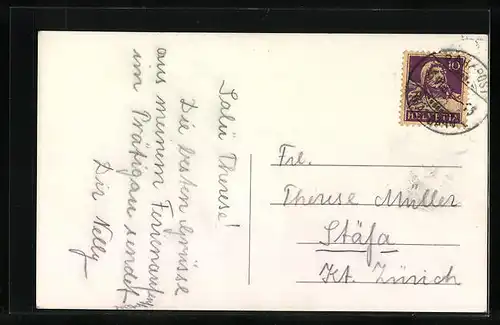 Salü Therese!
Die besten Grüsse
aus meinem Ferienaufent
im Prätigau sendet
Dir Nelly
10
HELVETIA
Frl.
Therese Müller
Stäfa
Kt. Zürich